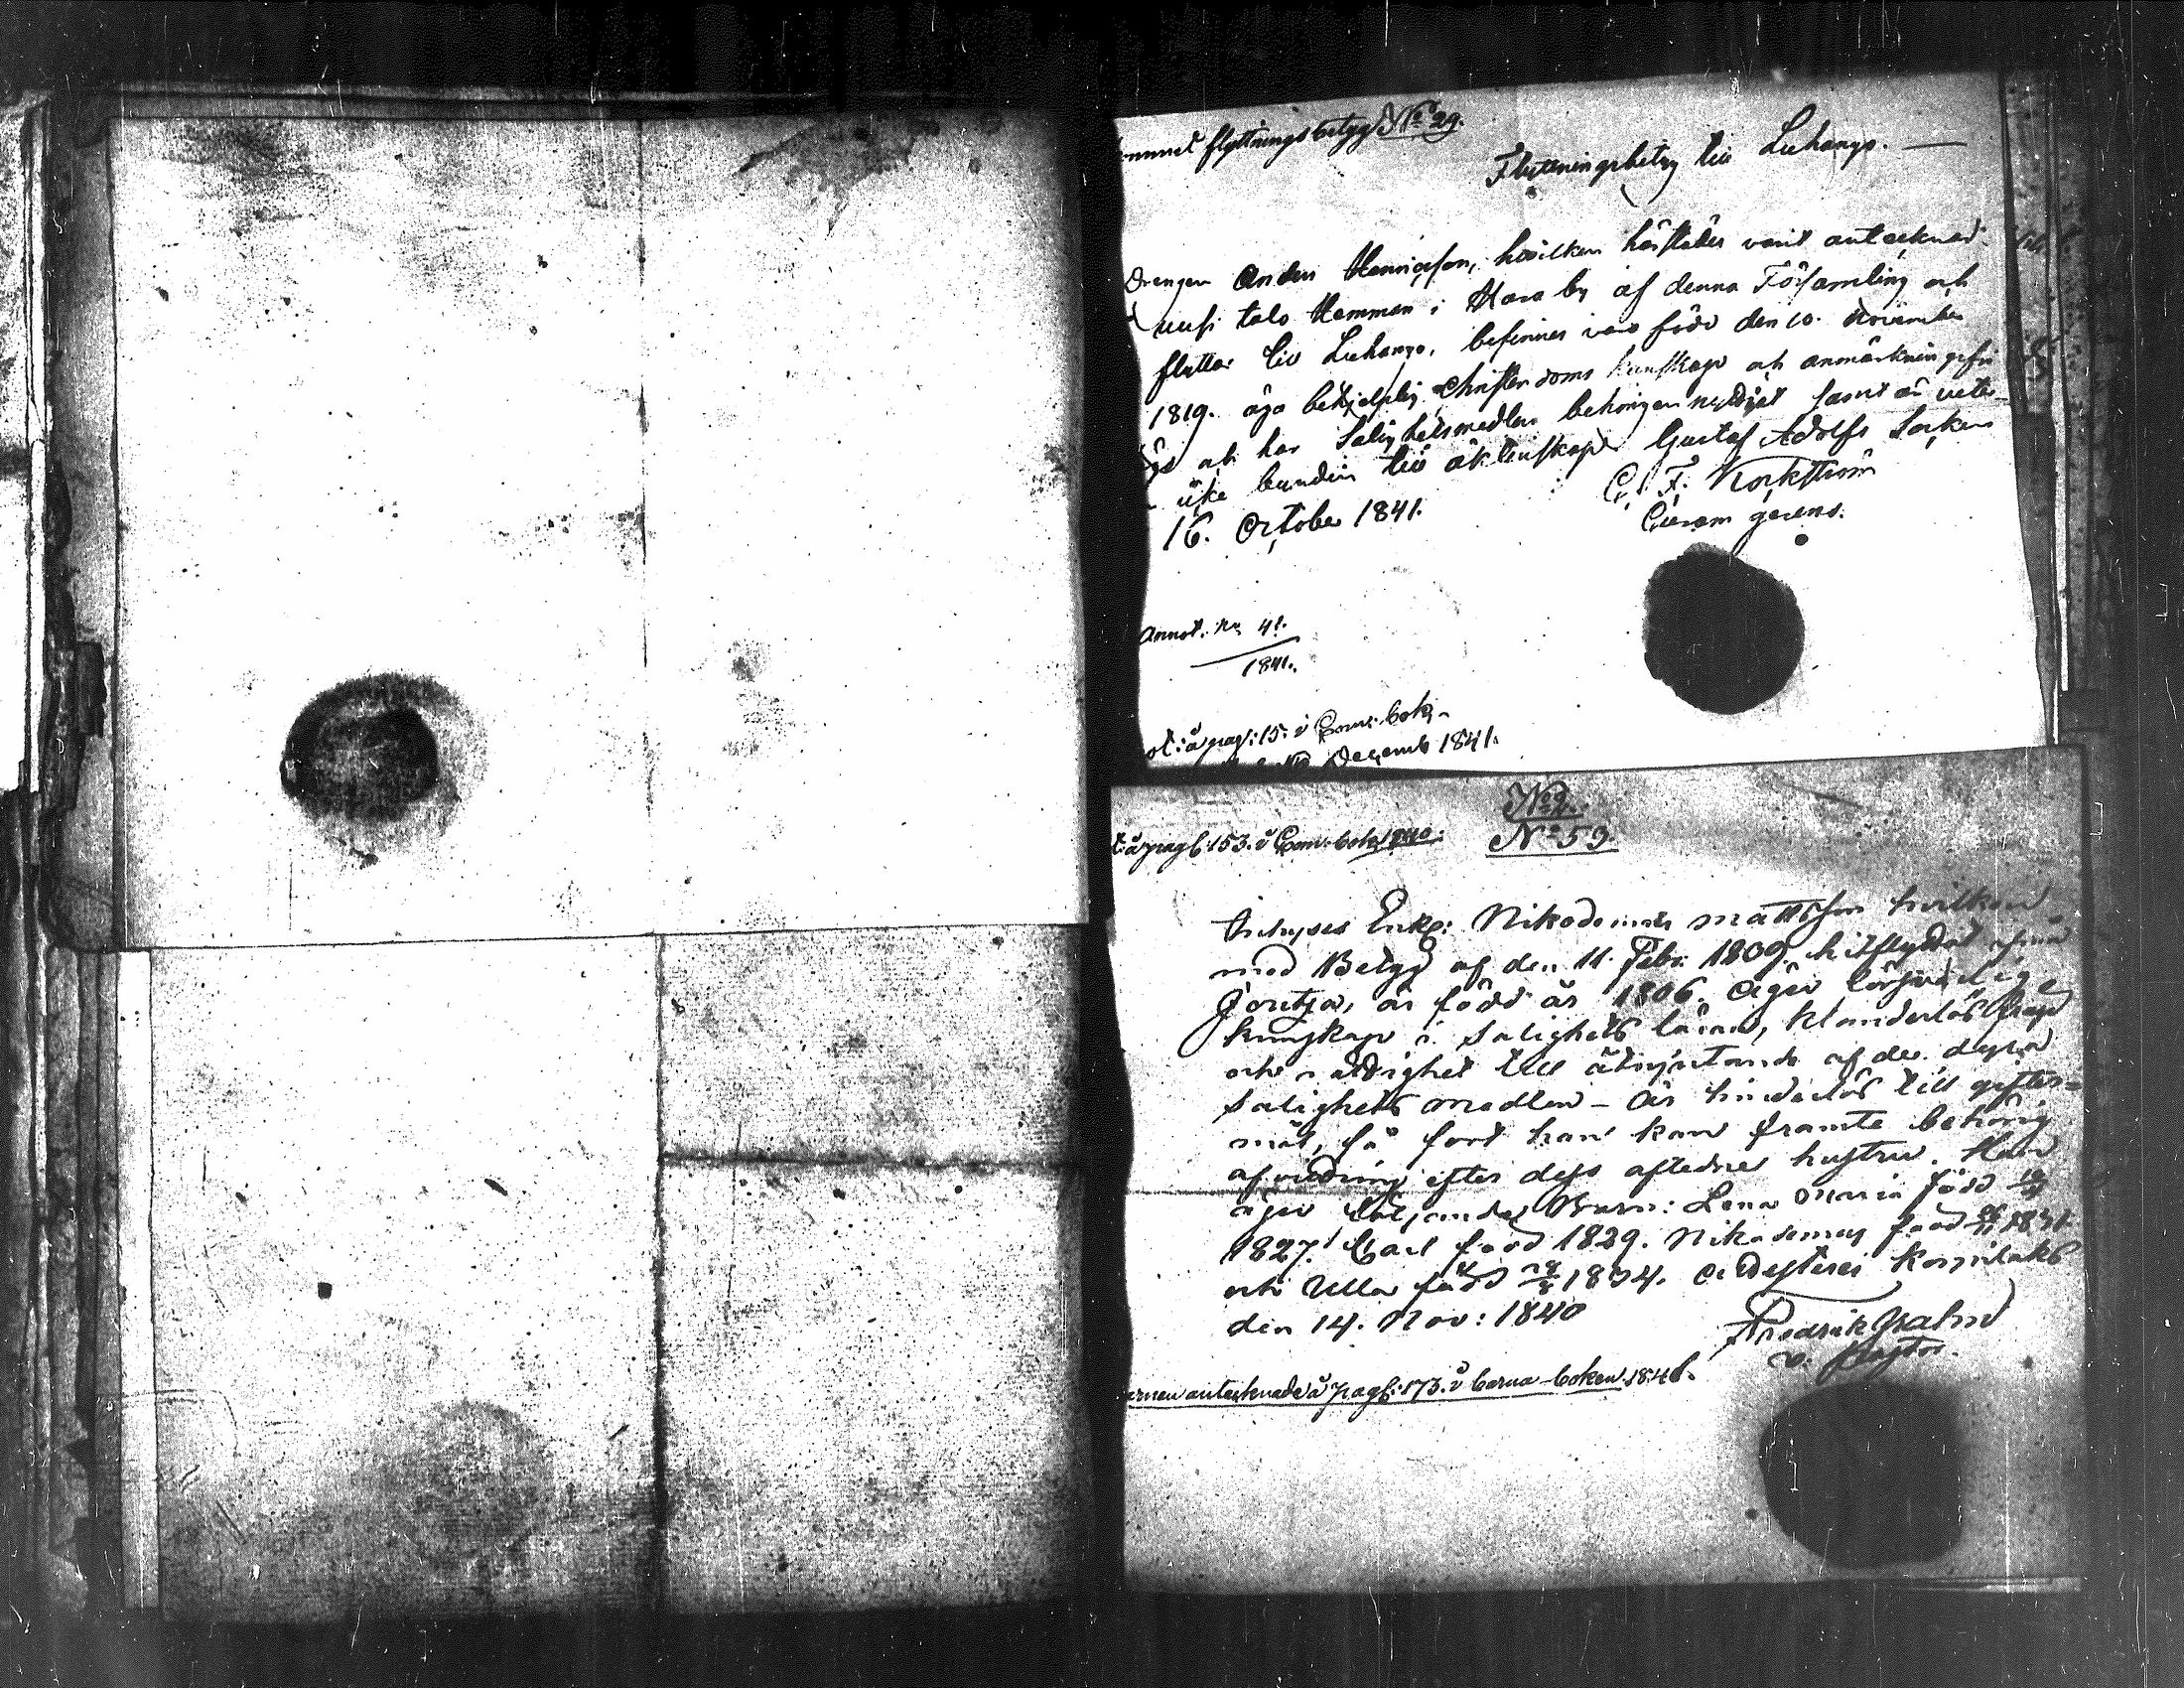 flyttningsbetyg No 29.
Flyttningsbetyg till Luhango.
Drengen Anders Henricsson, hwilken härstädes varit antecknad
uusi talo Hemman i Hara by af denna Församling och
flyttar till Luhango, befinnes vara född den 10. November
1819. äga behjelplig Christendoms kunskap och anmärkningsfri
och har Salighetsmedlen behörigen nyttjat samt är veter-
icke bunden till äktenskap. Gustaf Adolfs Socken
16. October 1841. C. F. Korkström
Curam gerens.
Annot. No 41.
1841.
pag: 15. i Com: bok.
Decemb 1841.
No 2.
å pag: 153. i Com: bok 1840: No 53.
Enkl: Nikodemus Mattsson hvilken
med Betyg af den 11. Febr. 1809. hitflyttat ifrån
Joutsa, är född år 1806. äger försvarlig
kunskap i Salighets läran, klanderlös frejd
och värdighet till åtnjutande af de dyra
Salighets medlen - är hinderlös till gifter-
mål, så fort han kan framte behörig
afvittring efter dess aflednes hustru. Han
äger följande Barn: Lena Maria född
1827. Carl född 1829. Nikodemus född 1831.
och Ulla född 1834. Korpilaks
den 14. Nov: 1840
Fredrik
v. Pastor.
antecknade å pag: 173. i barna-boken 1841.